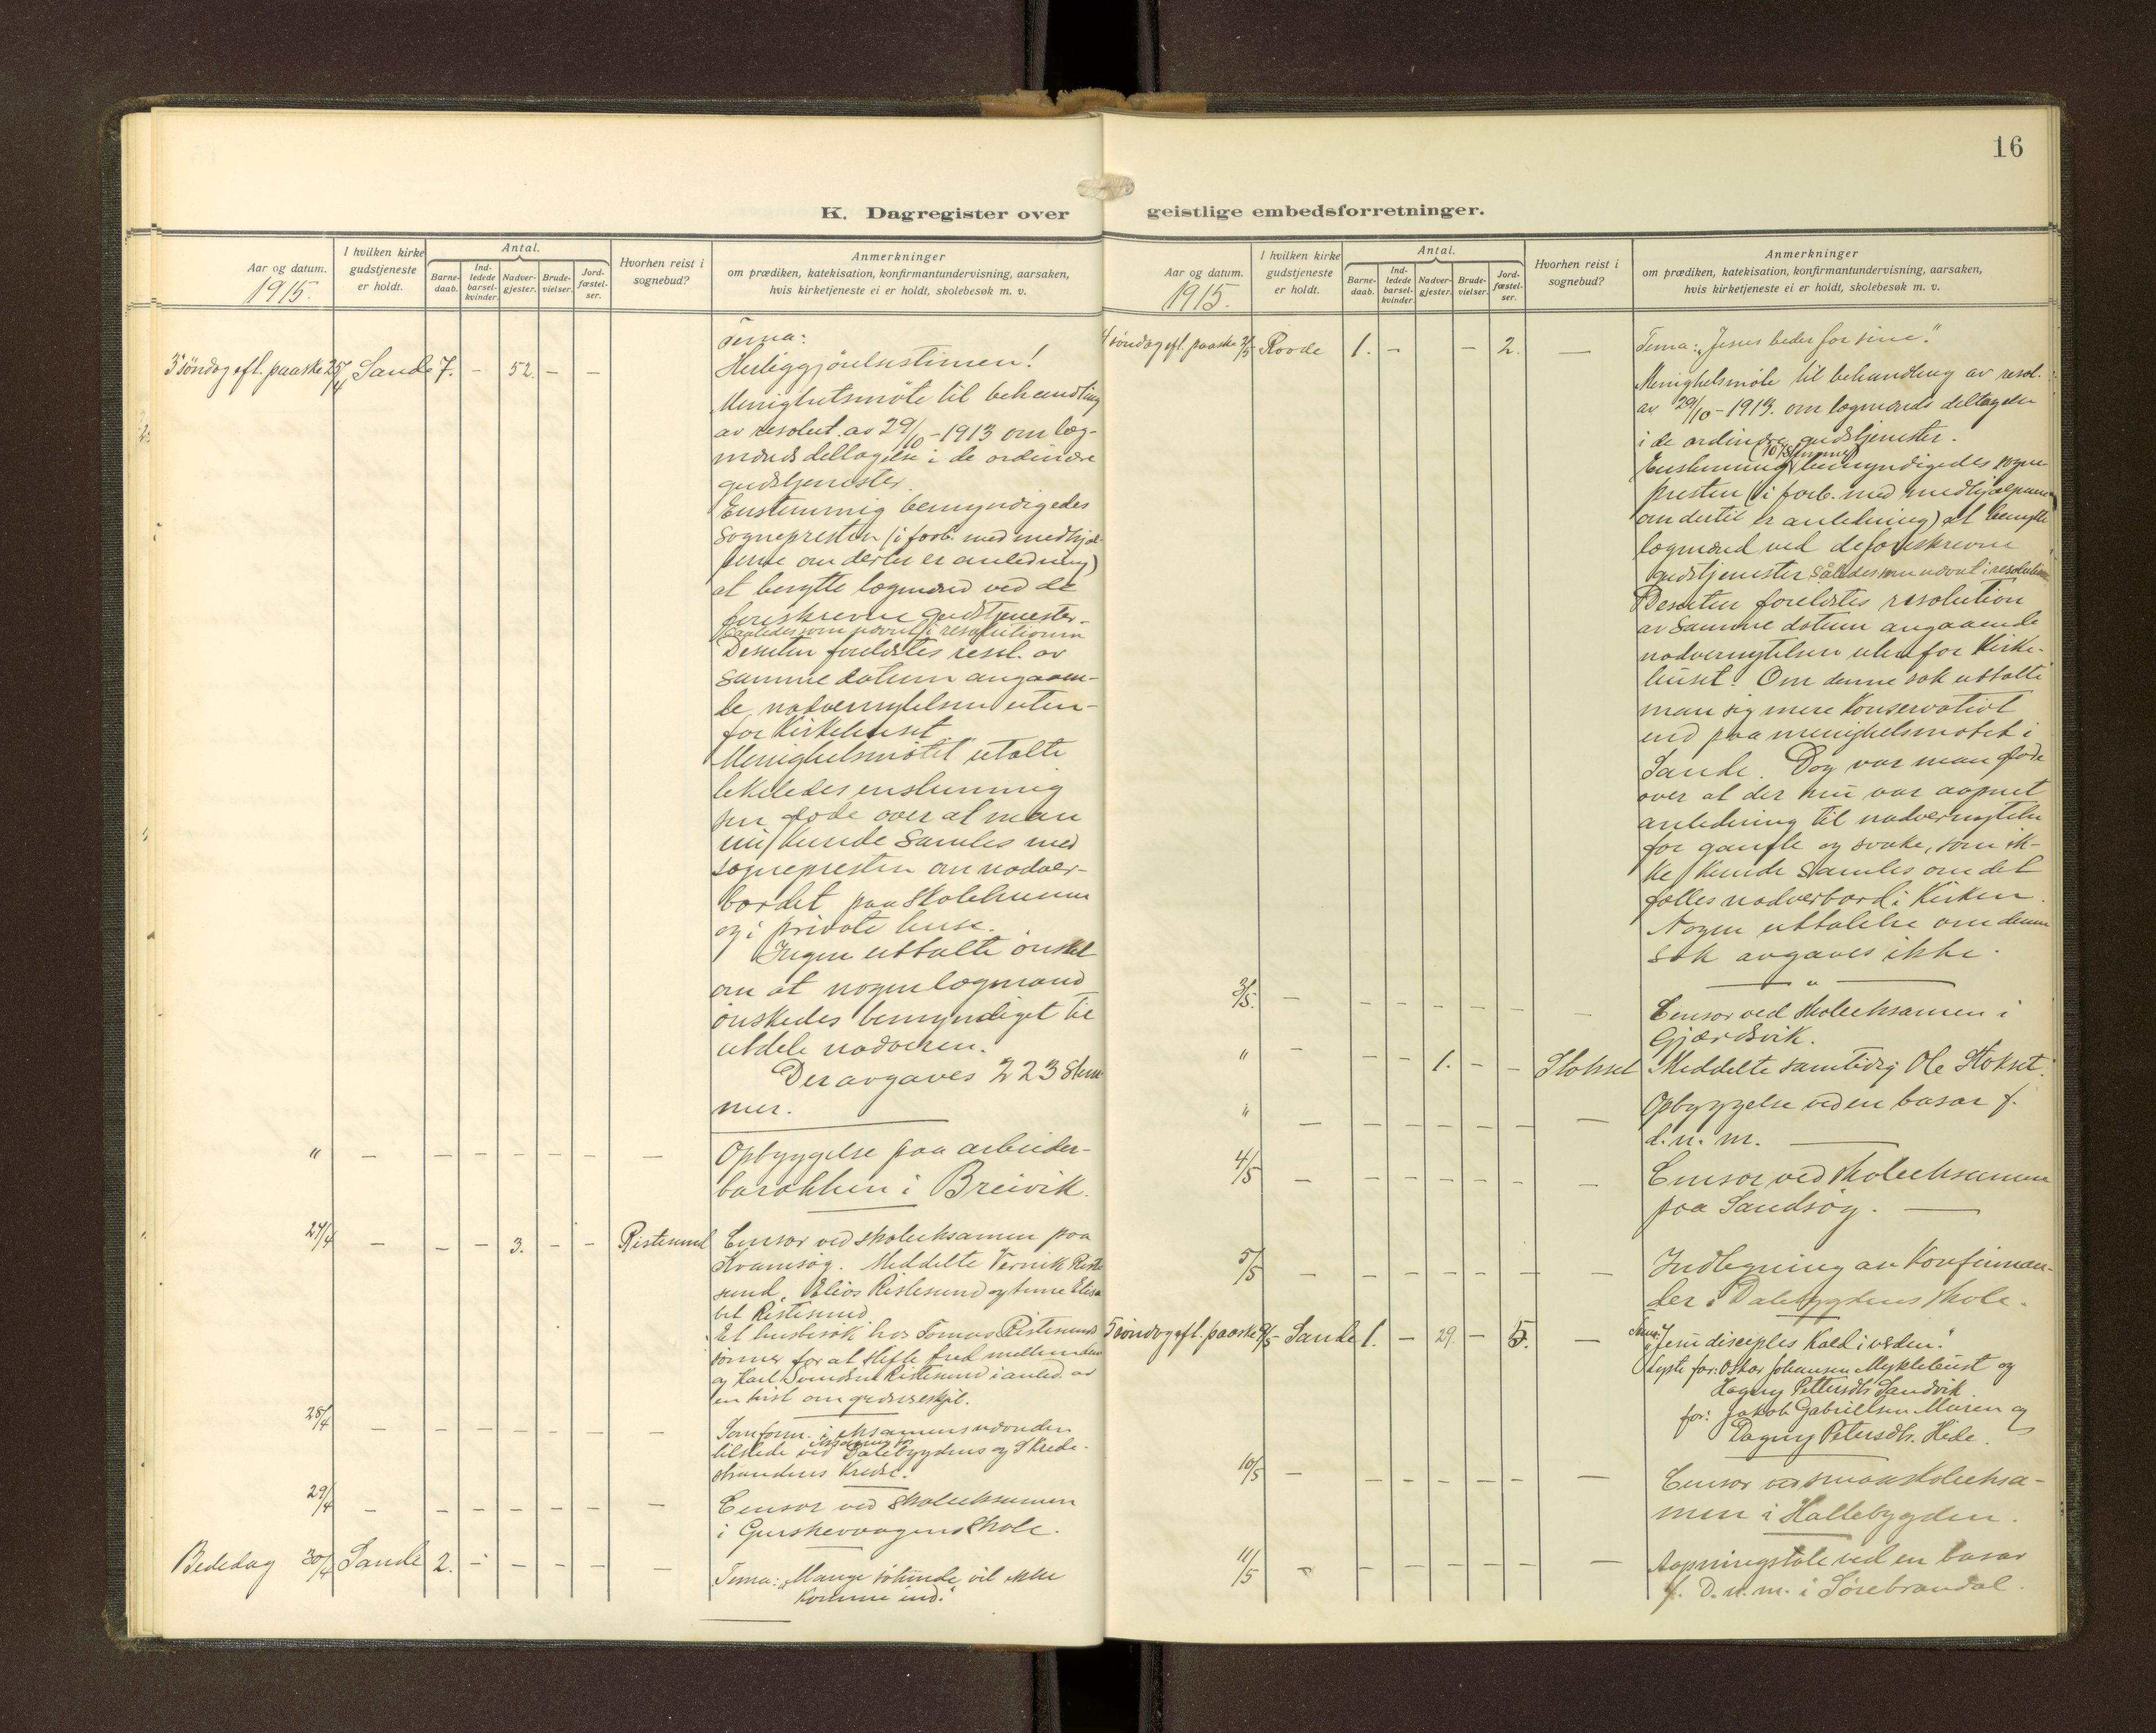 16
K. Dagregister over geistlige embedsforretninger.
Aar og datum.
1915.
I hvilken kirke gudstjeneste er holdt.
Antal.
Barnedaab.
Indledede barselkvinder.
Nadvergjester.
Brudevielser.
Jordfæstelser.
Hvorhen reist i sognebud?
Anmerkninger
om prædiken, katekisation, konfirmantundervisning, aarsaken,
hvis kirketjeneste ei er holdt, skolebesøk m. v.
3 söndag eft. paaske 25/4 Sande 7. - 52. - -
Tema:
Helliggjörelsestimen!
Menighetsmöte til behandling
av resolut. av 29/10-1913 om læg-
mænds deltagelse i de ordinære
gudstjenester.
Enstemmig bemyndigedes
Sognepresten (i forb. med medhjæl-
perne om dertil er anledning)
at benytte lægmænd ved de
foreskrevne gudstjenester
saaledes som nævnt i resolutionen
Desuten forelæstes resol. av
samme datum angaaen-
de nadvernytelsen uten-
for Kirkehuset
Menighetsmötet utalte
likeledes enstemmig
sin glæde over at man
nu kunde samles med
sognepresten om nadver-
bordet paa skolehusene
og i private huse.
Ingen uttalte önsket
om at nogen lægmand
önskedes bemyndiget til
utdele nadveren.
Der avgaves 223 stem
mer.
" - - - - - - -
Opbyggelse paa arbeider-
barakken i Breivik.
27/4 - - - 3. - - Ristesund
Censor ved skoleeksamen paa
Kvamsöy. Meddelte Vernik Riste
sund, Elias Ristesund og hune Elisa
bet Ristesund
Et husbesök hos Tomas Ristesunds
sönner for at stifte fred mellem dem
og Karl Svendsen Ristesund i anled. av
en trist om grænseskjel.
28/4 - - - - - - -
Som form. i eksamensnævnden
tilstede ved Dalebygdens og Skrede-
strandens Kreds.
29/4 - - - - - - -
Censor ved skoleeksamen
i Gurskevaagens skole.
Bededag 30/4 Sande 2. - - - - -
Tema: "Mange sökende vil ikke
komme ind."
Aar og datum.
1915.
I hvilken kirke gudstjeneste er holdt.
Antal.
Barnedaab.
Indledede barselkvinder.
Nadvergjester.
Brudevielser.
Jordfæstelser.
Hvorhen reist i sognebud?
Anmerkninger
om prædiken, katekisation, konfirmantundervisning, aarsaken,
hvis kirketjeneste ei er holdt, skolebesøk m. v.
4 söndag eft. paaske 2/5 Rovde 1. - - 2. -
Tema: "Jesus beder for sine."
Menighetsmöte til behandling av resol.
av 29/10-1913. om lægmænds deltagelse
i de ordinære gudstjenester.
Enstemmig (107 stemmer) bemyndigedes sogne
presten (i forb. med medhjælperne
om dertil er anledning) at benytte
lægmænd ved de foreskrevne
gudstjenester således som nævnt i resolution
Desuten forelæstes resolution
av samme datum angaaende
nadvernytelsen utenfor Kirke-
huset. Om denne sak uttalte
man sig mere konservativt
end paa menighetsmötet i
Sande. Dog var man glade
over at der nu var aapnet
anledning til nadvernytelse
for gamle og svake, som ik-
ke kunde samles om det
fælles nadverbord i Kirken.
Nogen uttalelse om denne
sak avgaves ikke.
3/5. - - - - - - -
Censor ved skoleeksamen i
Gjærdsvik.
" - - - 1. - - Stokset
Meddelte samtidig Ole Stokset.
" - - - - - - -
Opbyggelse ved en basar f.
d. n. m.
4/5 - - - - - - -
Censor ved skoleeksamen
paa Sandsöy.
5/5 - - - - - - -
Indtegning av konfirman-
der i Dalebygdens skole.
5 söndag eft. paaske 9/5 - Sande 1. - 29. - 5. -
Tema: "Jesu disciples kald i verden."
Lyste for: Oskar Johansen Myklebust og
Hagny Pettersdtr Sandvik.
for: Jakob Gabrielsen Muren og
Dagny Petersdtr. Hide.
10/5 - - - - - - -
Censor ved smaaskoleeksa-
men i Hallebygden.
11/5 - - - - - - -
Aapningstale ved en basar
f. D. n. m. i Sörebrandal.